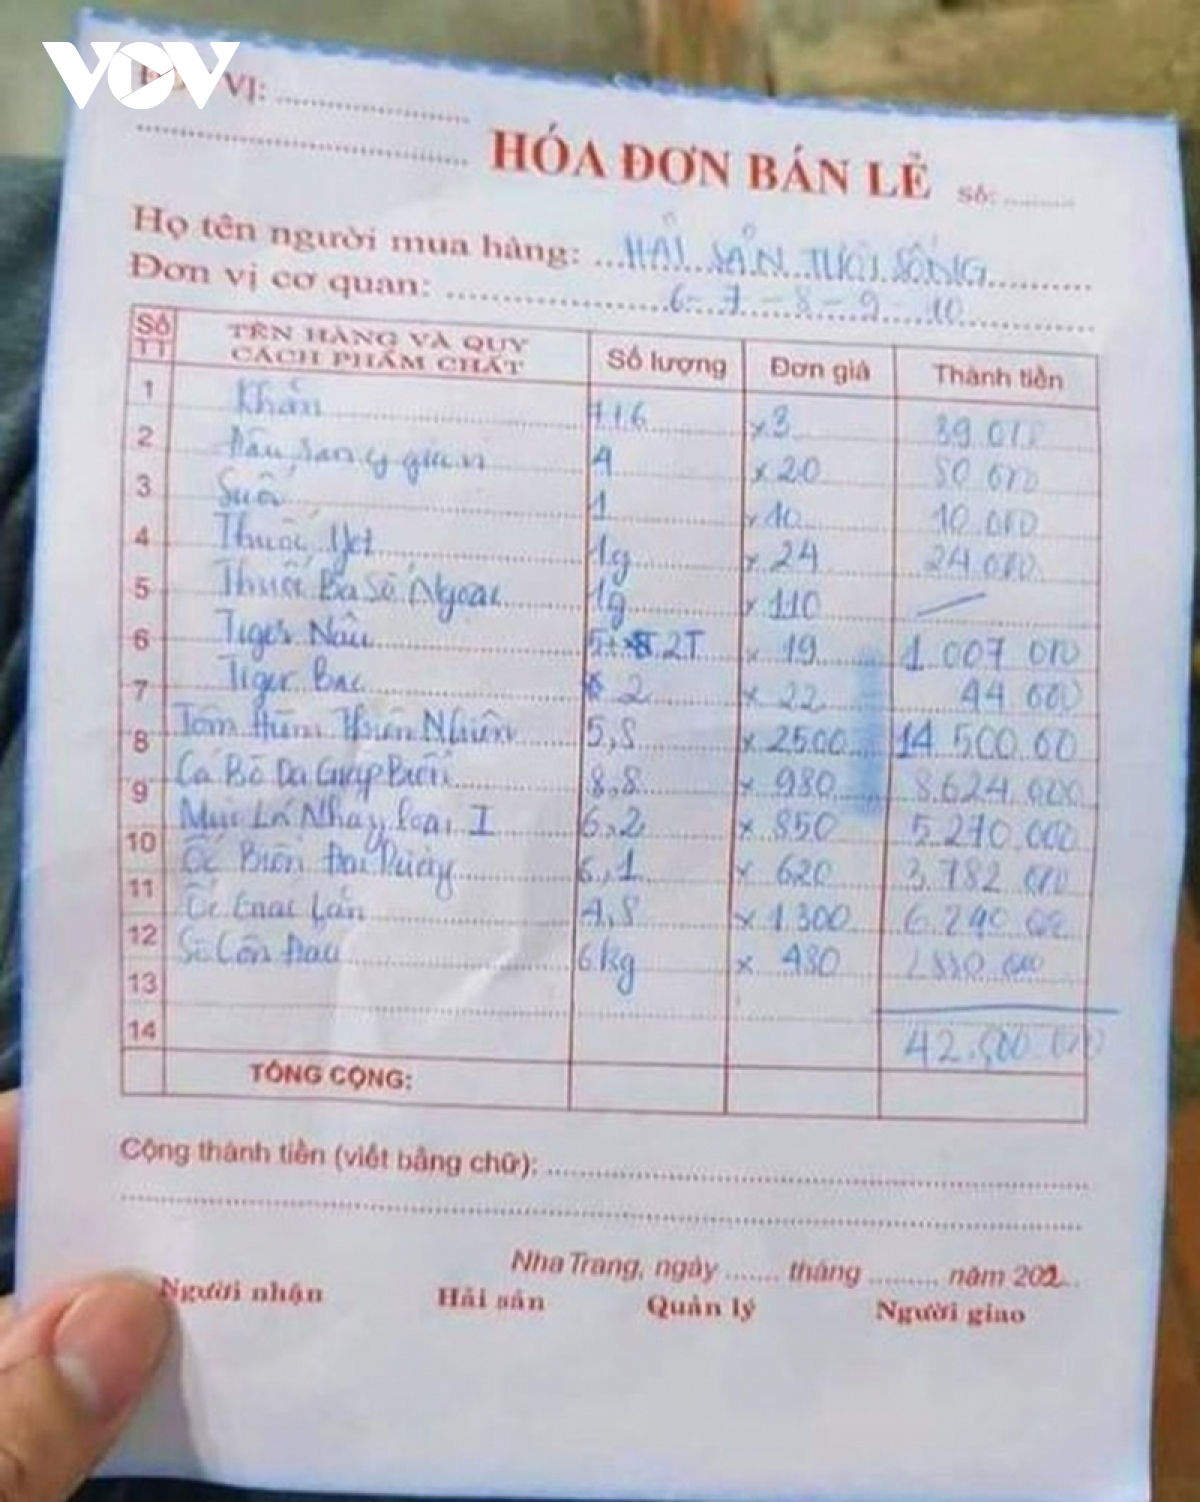 VOV
VỊ:
HÓA ĐƠN BÁN LẺ Số:
Họ tên người mua hàng: HẢI SẢN TƯƠI SỐNG
Đơn vị cơ quan: 6-7-8-9-10
Số TT TÊN HÀNG VÀ QUY CÁCH PHẨM CHẤT Số lượng Đơn giá Thành tiền
1 Khăn x3 39.000
2 4 x20 80 000
3 Suối 1 x 10 10.000
4 Thuốc Jet 1g x 24 24.000
5 Thuốc Ba Số Ngoại 1g x 110 —
6 Tiger Nâu 2T x 19 1.007 000
7 Tiger Bạc 2 x 22 44 000
8 Tôm Hùm Thiên Nhiên 5,8 x 2500 14 500.00
9 Cá Bò Da Giáp Biển 8.8 x 980 8.624.000
10 Mực Lá Nháy loại I 6.2 x 850 5.270.000
11 Ốc Biển Đại Dương 6,1 x 620 3.782 000
12 Ốc Lớn 4,8 x 1.300 6.240 000
13 Sò Lông 6kg x 480 000
14 42.500 000
TỔNG CỘNG:
Cộng thành tiền (viết bằng chữ):
Nha Trang, ngày ....... tháng ......... năm 202...
Người nhận Hải sản Quản lý Người giao